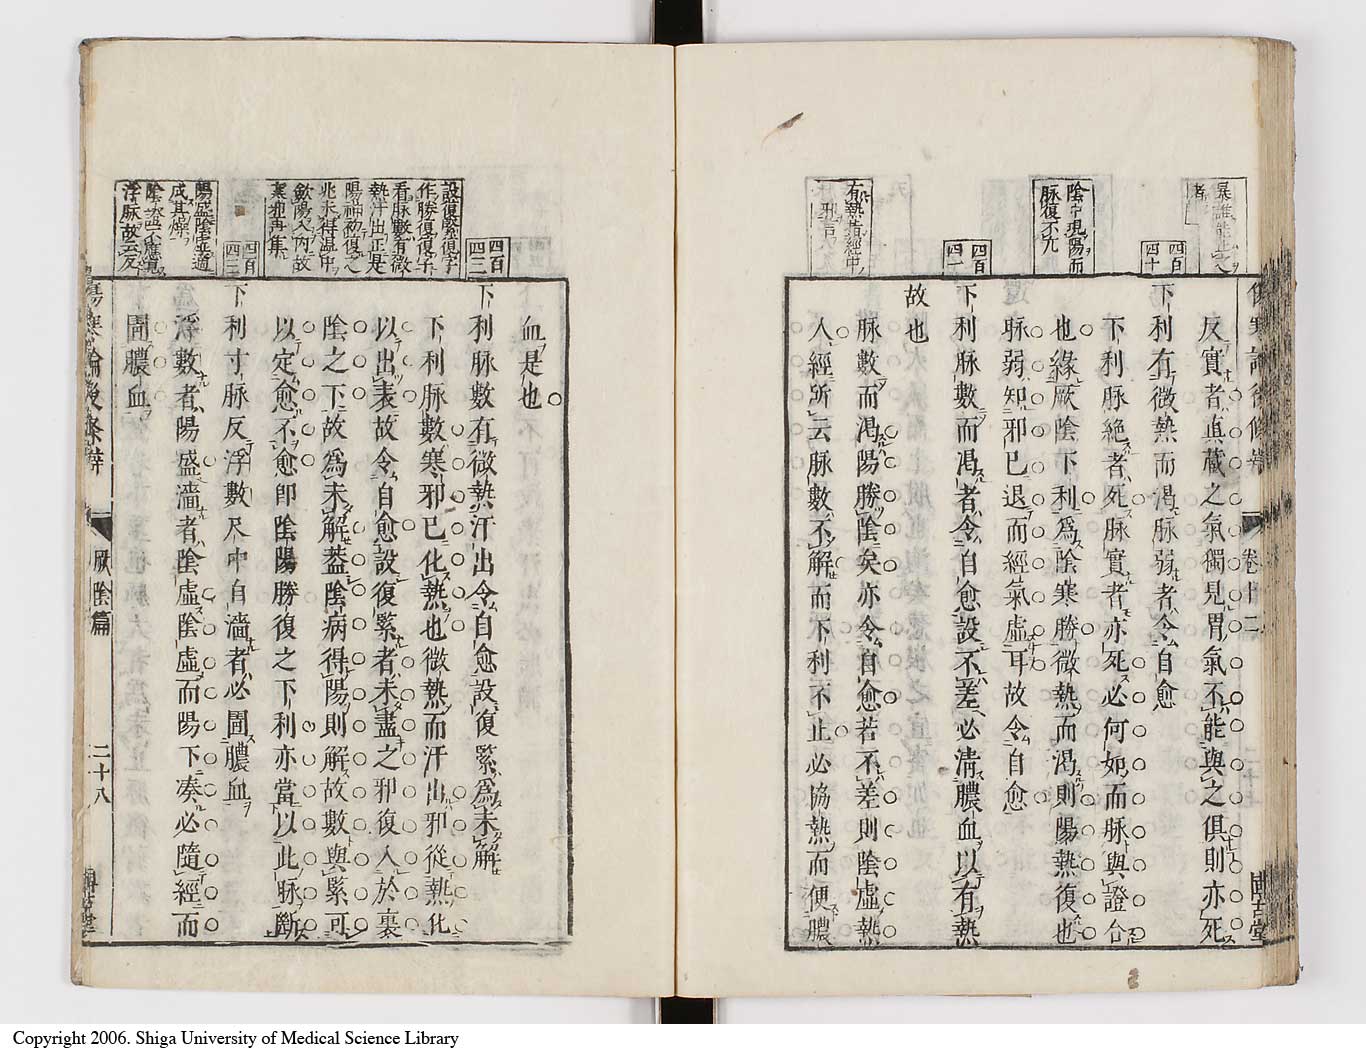 反實者眞藏之氣獨見胃氣不能與之俱則亦死
下利有微熱而渴脉弱者令自愈
下利脉絶者死脉實者亦死必何如而脉與證合
也緣厥陰下利爲陰寒勝微熱而渴則陽熱復也
脉弱知邪已退而經氣虛耳故令自愈
下利脉數而渴者令自愈設不差必清膿血以有熱
故也
脉數而渴陽勝陰矣亦令自愈若不差則陰虛熱
入經所云脉數不解而下利不止必協熱而便膿
卷十二
四百四十
陰中現陽而
脉復不亢
四百四一
血是也
下利脉數有微熱汗出令自愈設復緊爲未解
下利脉數寒邪已化熱也微熱而汗出邪從熱化
以出表故令自愈設復緊者未盡之邪復入於裏
陰之下故爲未解蓋陰病得陽則解故數與緊可
以定愈不愈即陰陽勝復之下利亦當以此脉斷
下利寸脉反浮數尺中自濇者必圊膿血
浮數者陽盛濇者陰虛陰虛而陽下凑必隨經而
圊膿血
厥陰篇
二十八
四百四二
設復緊復字
作勝復復字
看脉數有微
熱汗出正是
陽神初復之
兆未得温中
斂陽入内故
寒邪再集
四百四三
陽盛陰虛適
成其燥
浮脉故云反
Copyright 2006. Shiga University of Medical Science Library